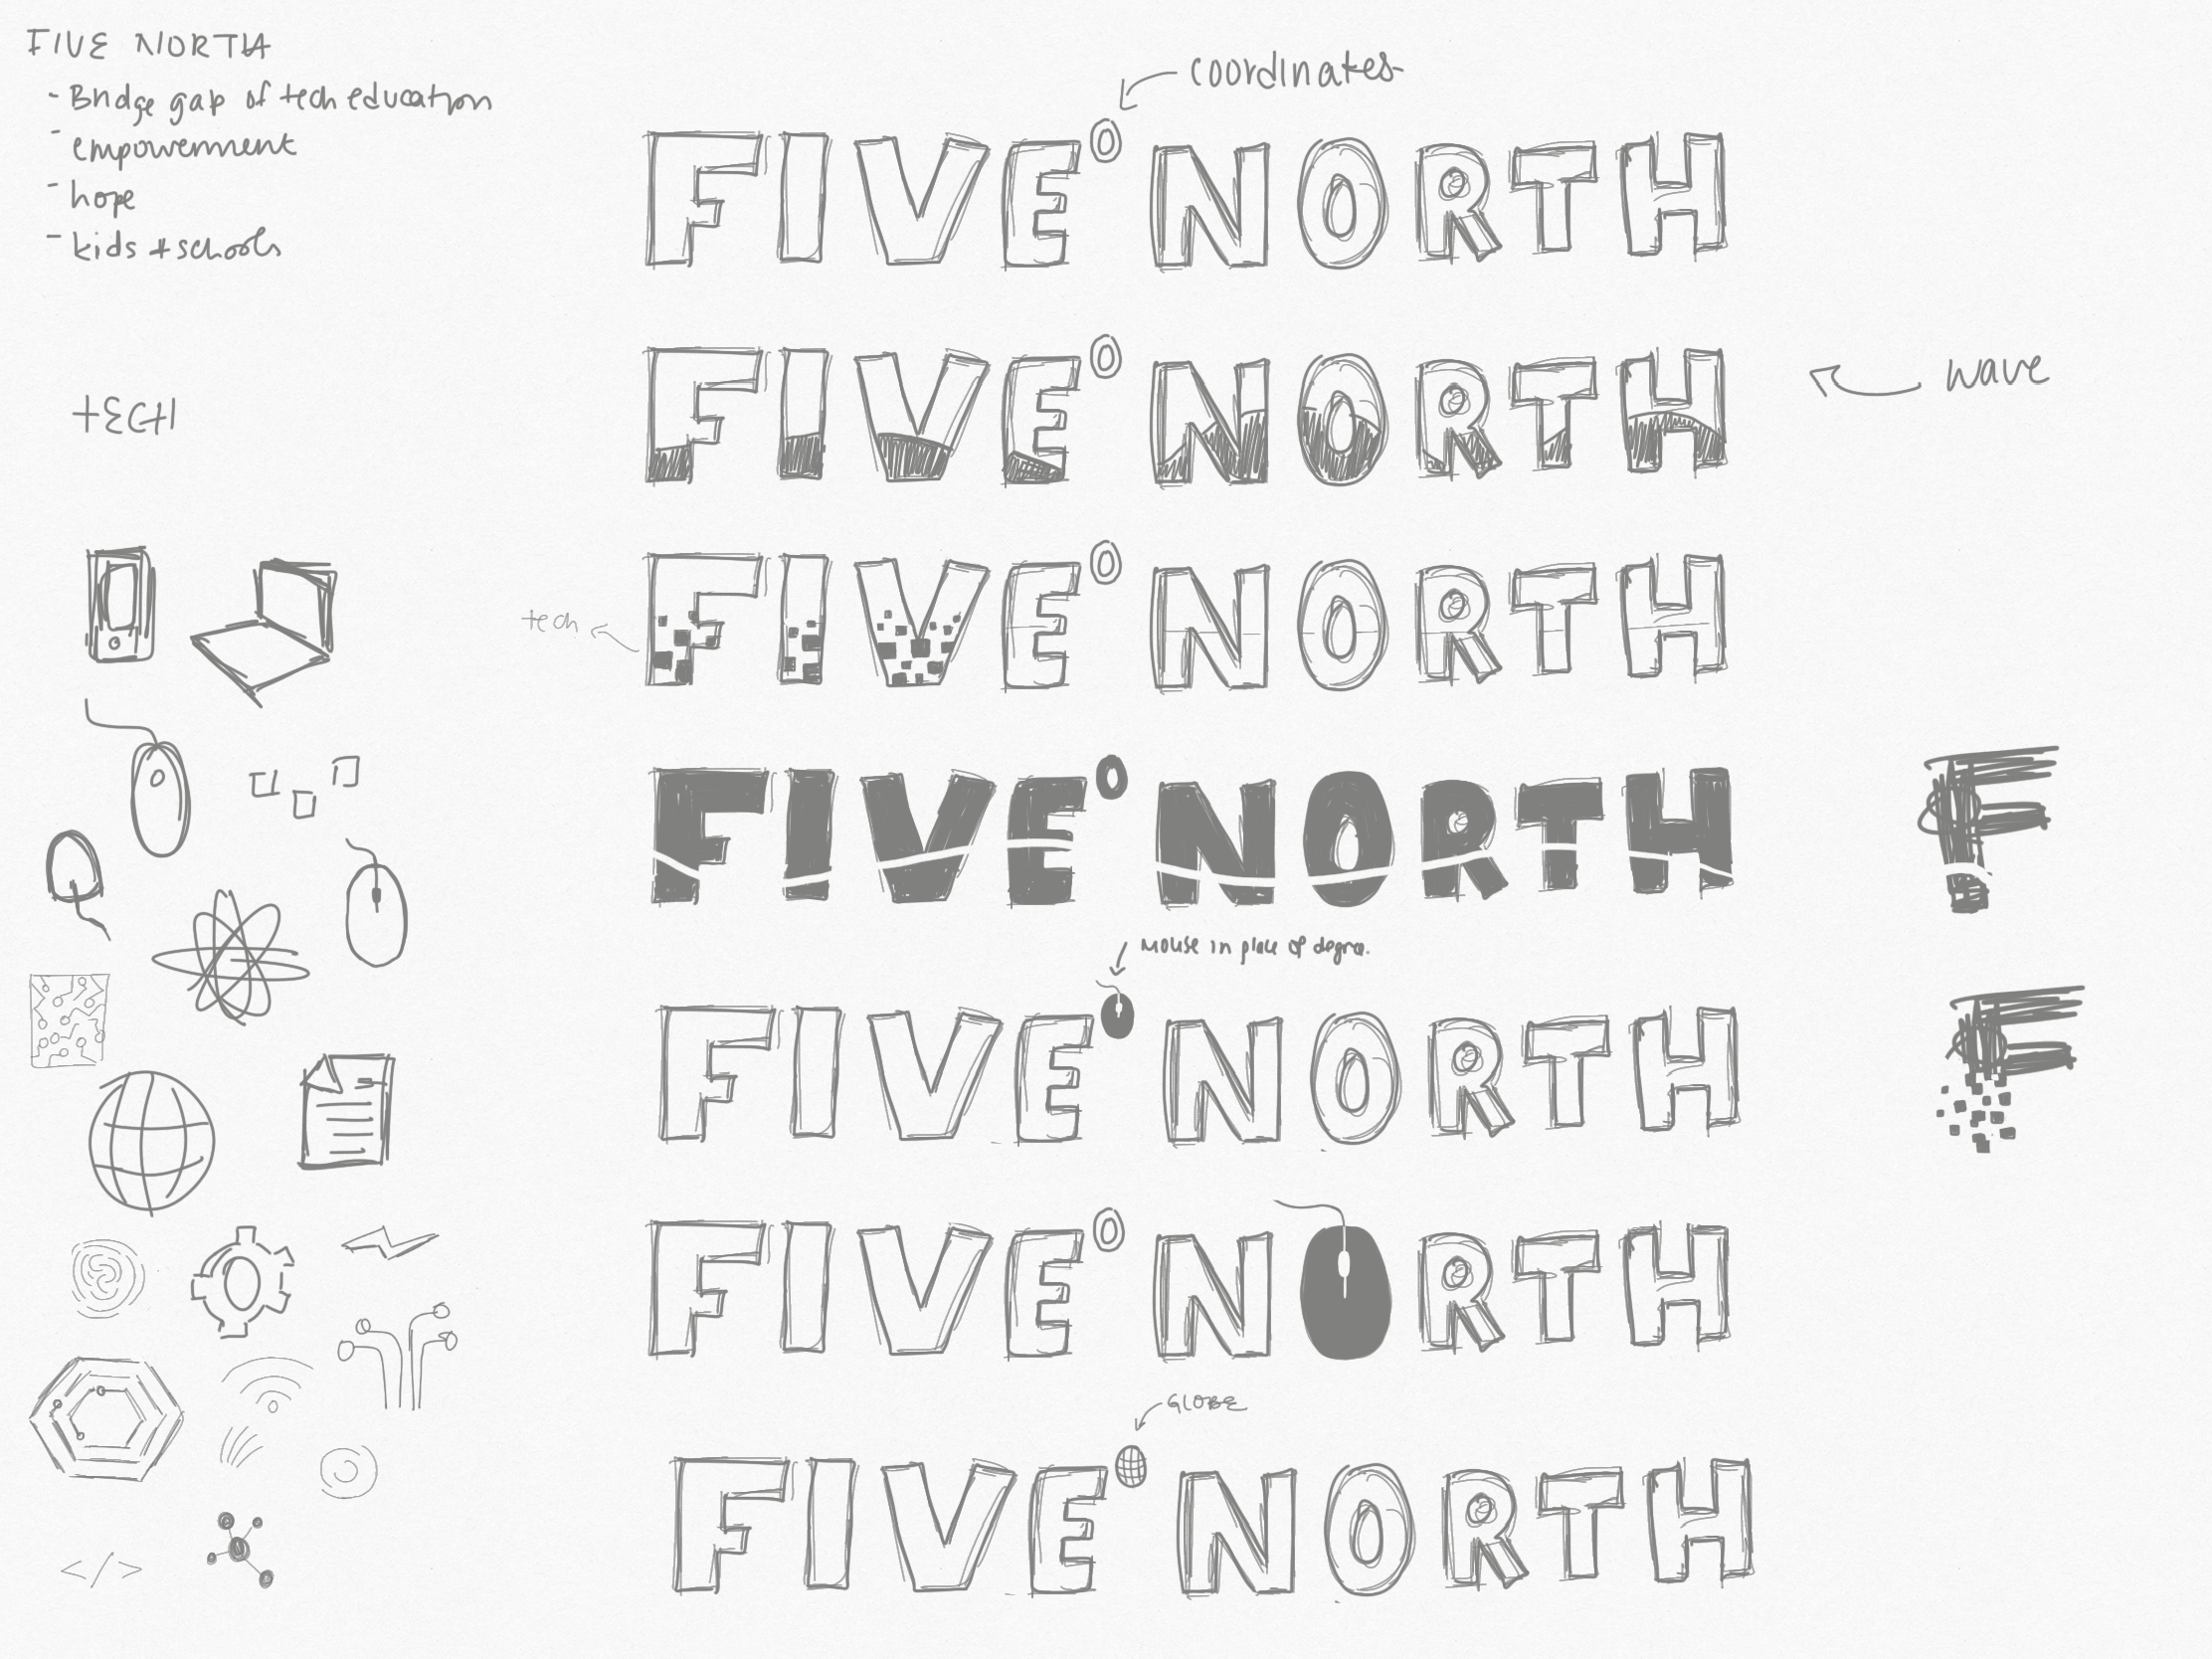 FIVE NORTH
- Bridge gap of tech education
- empowerment
- hope
- kids + schools
TECH
</>
coordinates
FIVE° NORTH
FIVE° NORTH
wave
tech
FIVE° NORTH
FIVE° NORTH
F
Mouse in place of degree.
FIVE NORTH
F
FIVE° NORTH
GLOBE
FIVE NORTH